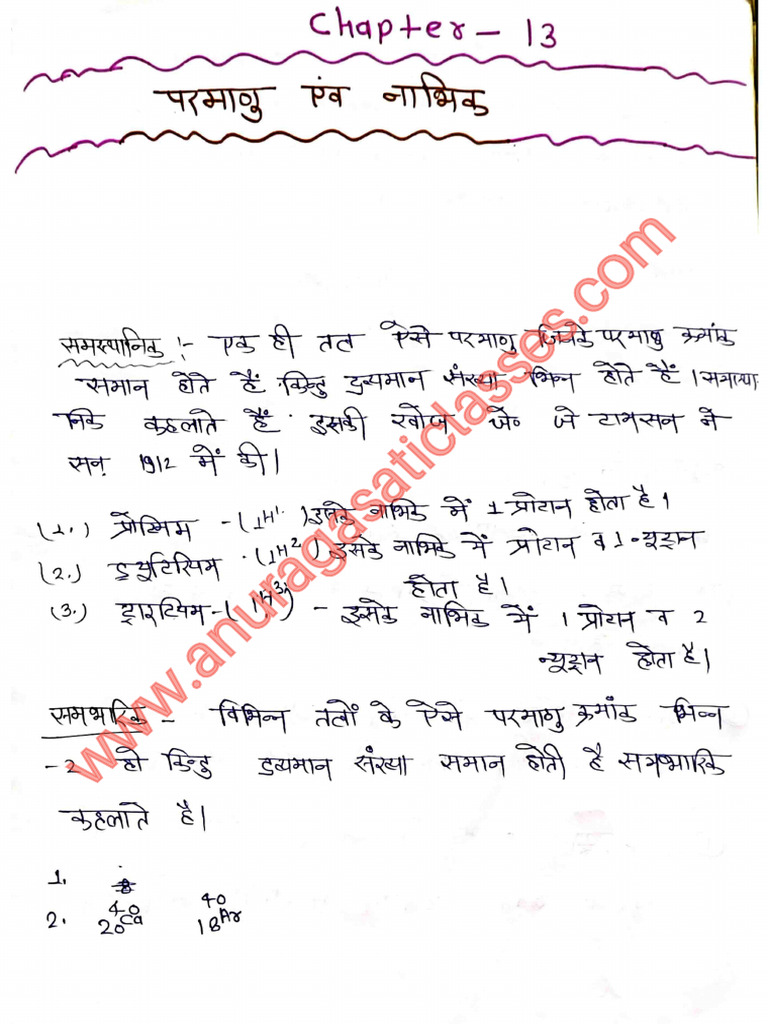 Chapter - 13
परमाणु एंव नाभिक
समस्थानिक :- एक ही तत्व ऐसे परमाणु जिनके परमाणु क्रमांक
समान होते हैं किन्तु द्रव्यमान संख्या भिन्न होते हैं । समस्था
निक कहलाते हैं इसकी खोज जे० जे टामसन ने
सन् 1912 में की।
(1.) प्रोटियम - (1H1) इसके नाभिक में 1 प्रोटान होता है।
(2.) ड्यूटिरियम - (1H2) इसके नाभिक में प्रोटान व 1 न्यूट्रान
होता है।
(3.) ट्राइटियम - (1H3) - इसके नाभिक में 1 प्रोटान व 2
न्यूट्रान होता है।
समभारिक - विभिन्न तत्वों के ऐसे परमाणु क्रमांक भिन्न
-2 हो किन्तु द्रव्यमान संख्या समान होती है समभारिक
कहलाते है।
1.
2. 40 20 Ca 40 18 Ar
www.anuragasaticlasses.com